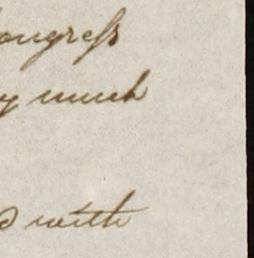 ongress
y much
d with